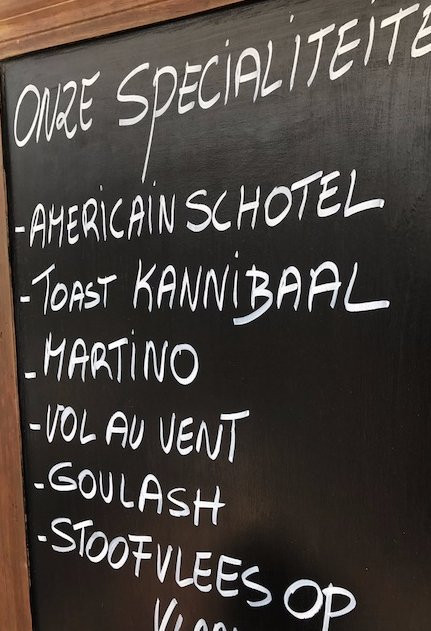 ONZE SPECIALITEITE
-AMERICAIN SCHOTEL
-TOAST KANNIBAAL
-MARTINO
-VOL AU VENT
-GOULASH
-STOOFVLEES OP